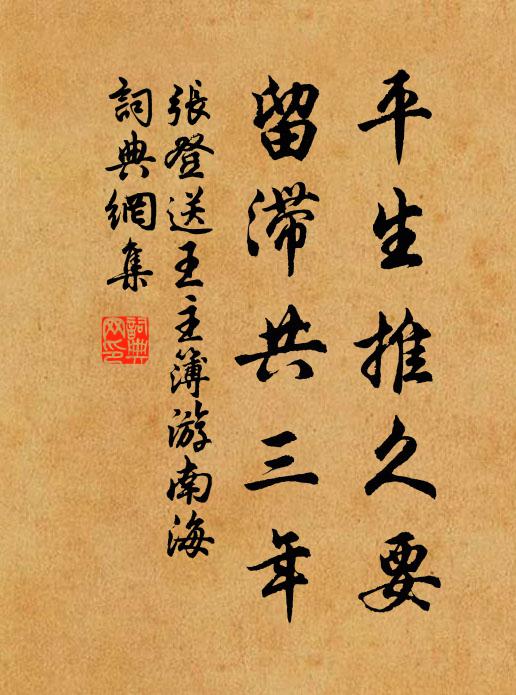 平生推久要
留滞共三年
張登送王主簿游南海
詞典網集
詞典
網印